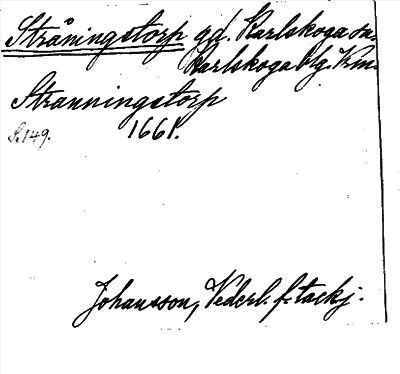 Stråningstorp gd. Karlskoga sn.
Karlskoga blg. Krm.
Stranningstorp
S. 149. 1661.
Johansson, Vederl. f. tackj.